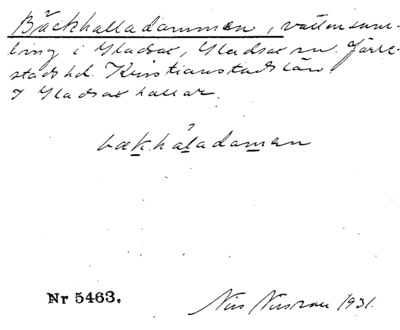 Bäckhalladammen, vattensam-
ling i Gladsax, Gladsax sn. Järre-
stads hd. Kristianstads län
I Gladsax hallar.
bækhaladaman
Nr 5463.
Nils 1931.